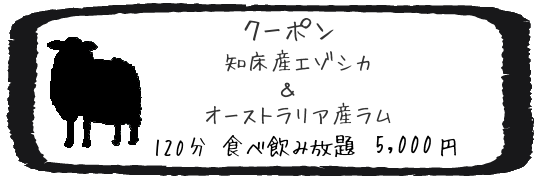 クーポン
知床産エゾシカ
&
オーストラリア産ラム
120分 食べ飲み放題 5,000円